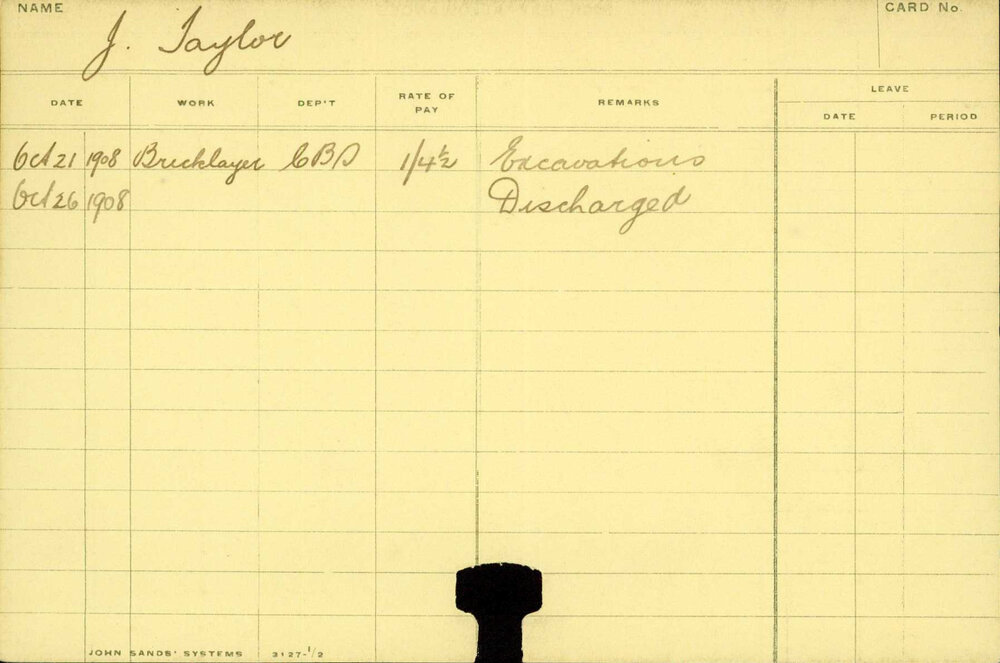 NAME
CARD No.
J. Taylor
DATE WORK DEP'T RATE OF PAY REMARKS LEAVE
DATE PERIOD
Oct 21 1908 Bricklayer CBD 1/4½ Excavations
Oct 26 1908 Discharged
JOHN SANDS' SYSTEMS 3127-1/2